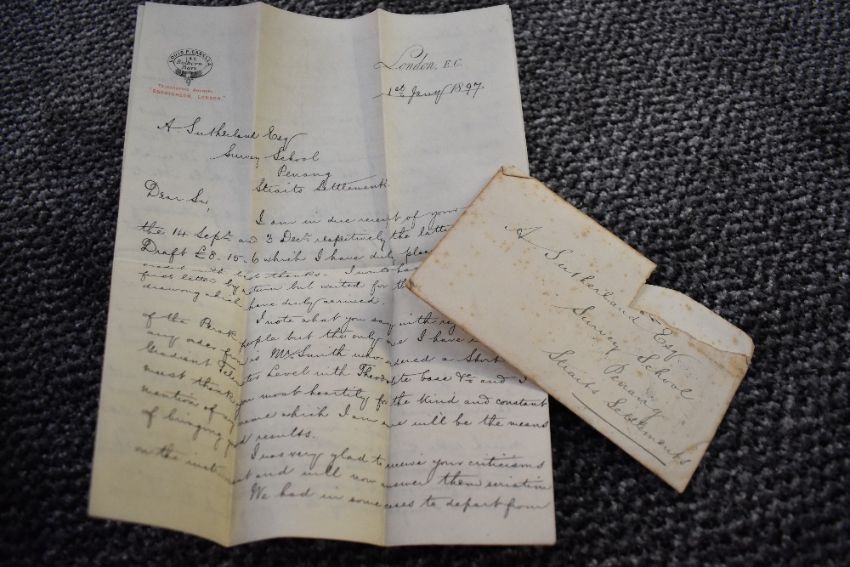 LOUIS P. CASELLA
TELEGRAPHIC ADDRESS
LONDON."
London, E.C.
1st Jany 1897.
A Sutherland Esq
Survey School
Penang
Straits Settlement
Dear Sir,
I am in due receipt of your
the 14 Septr and 3 Decr respectively the latter
Draft £8.15.6 which I have duly
with best thanks. I
first letter by return but waited for the
drawing which have duly arrived.
I note what you say in the
of the Perak people but the only one I have
any order from is Mr Smith who ordered a Short
Gradient Level with Theodolite base &c and I
must thank you most heartily for the kind and constant
mention of my name which I am sure will be the means
of bringing good results.
I was very glad to receive your criticisms
on the instrument and will now answer them seriatim
We had in some cases to depart from
A Sutherland Esq.
Survey School
Penang
Straits Settlements